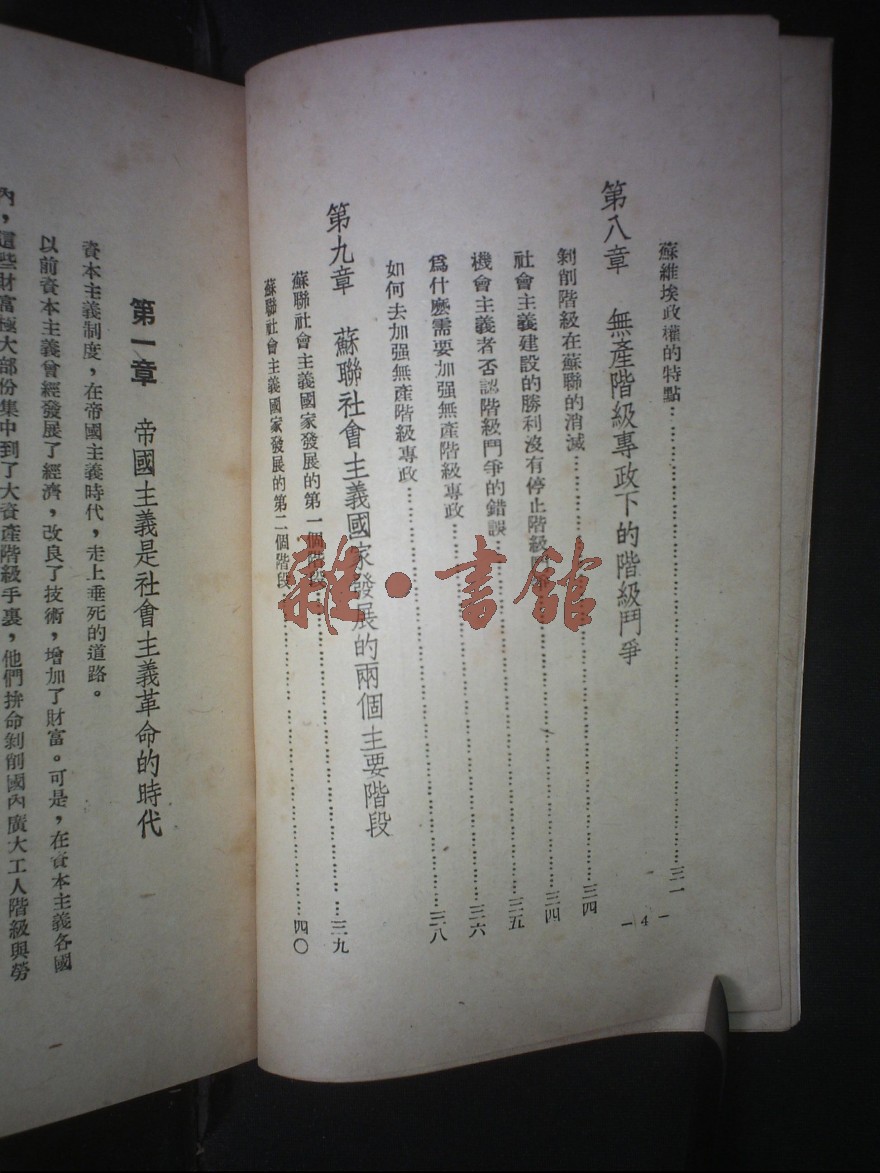 蘇維埃政權的特點……三一
第八章 無產階級專政下的階級鬥爭
剝削階級在蘇聯的消滅……三四
社會主義建設的勝利沒有停止階級鬥……三四
機會主義者否認階級鬥爭的錯誤……三五
爲什麽需要加强無產階級專政……三六
如何去加强無產階級專政……三八
第九章 蘇聯社會主義國家發展的兩個主要階段
蘇聯社會主義國家發展的第一個階段……三九
蘇聯社會主義國家發展的第二個階段……四〇
— 4 —
雜·書館
第一章 帝國主義是社會主義革命的時代
資本主義制度，在帝國主義時代，走上垂死的道路。
以前資本主義曾經發展了經濟，改良了技術，增加了財富。可是，在資本主義各國
內，這些財富極大部份集中到了大資產階級手裏，他們拚命剝削國內廣大工人階級與勞